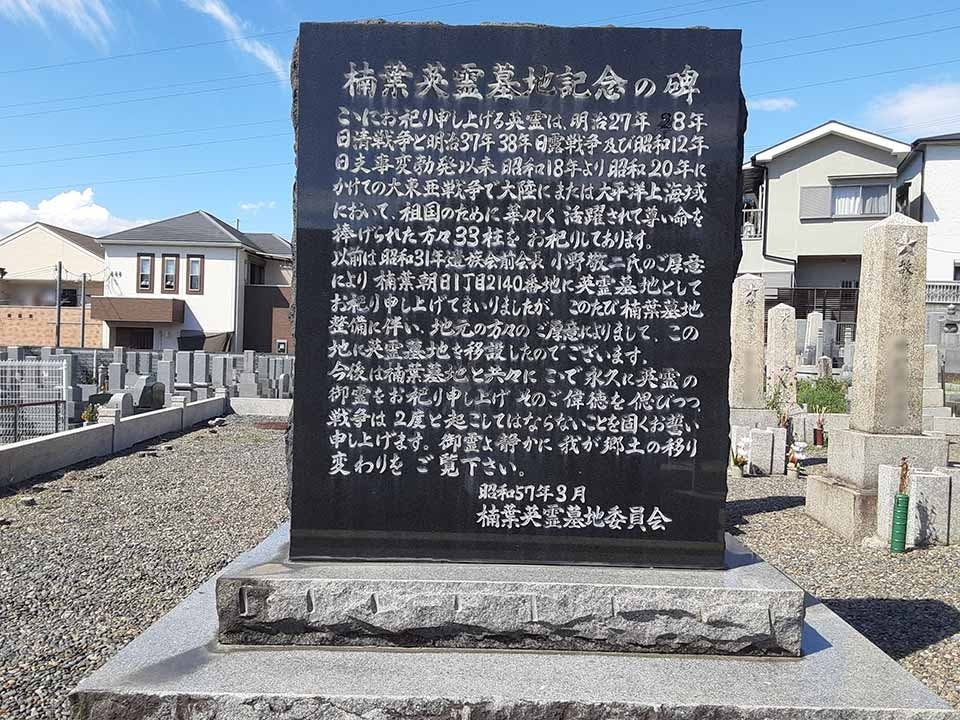 楠葉英霊墓地記念の碑
こゝにお祀り申し上げる英霊は、明治27年 28年
日清戦争と明治37年 38年日露戦争及び昭和12年
日支事変勃発以来 昭和18年より昭和20年に
かけての大東亜戦争で大陸にまたは大平洋上海域
において、祖国のために華々しく活躍されて尊い命を
捧げられた方々33柱をお祀りしてあります。
以前は昭和31年遺族会前会長 小野敬二氏のご厚意
により 楠葉朝日1丁目2140番地に英霊墓地として
お祀り申し上げてまいりましたが、このたび楠葉墓地
整備に伴い、地元の方々のご厚意によりまして、この
地に英霊墓地を移設したのでございます。
今後は楠葉墓地と共々にこゝで永久に英霊の
御霊をお祀り申し上げ そのご偉徳を偲びつつ
戦争は2度と起こしてはならないことを固くお誓い
申し上げます。御霊よ静かに我が郷土の移り
変わりをご覧下さい。
昭和57年3月
楠葉英霊墓地委員会